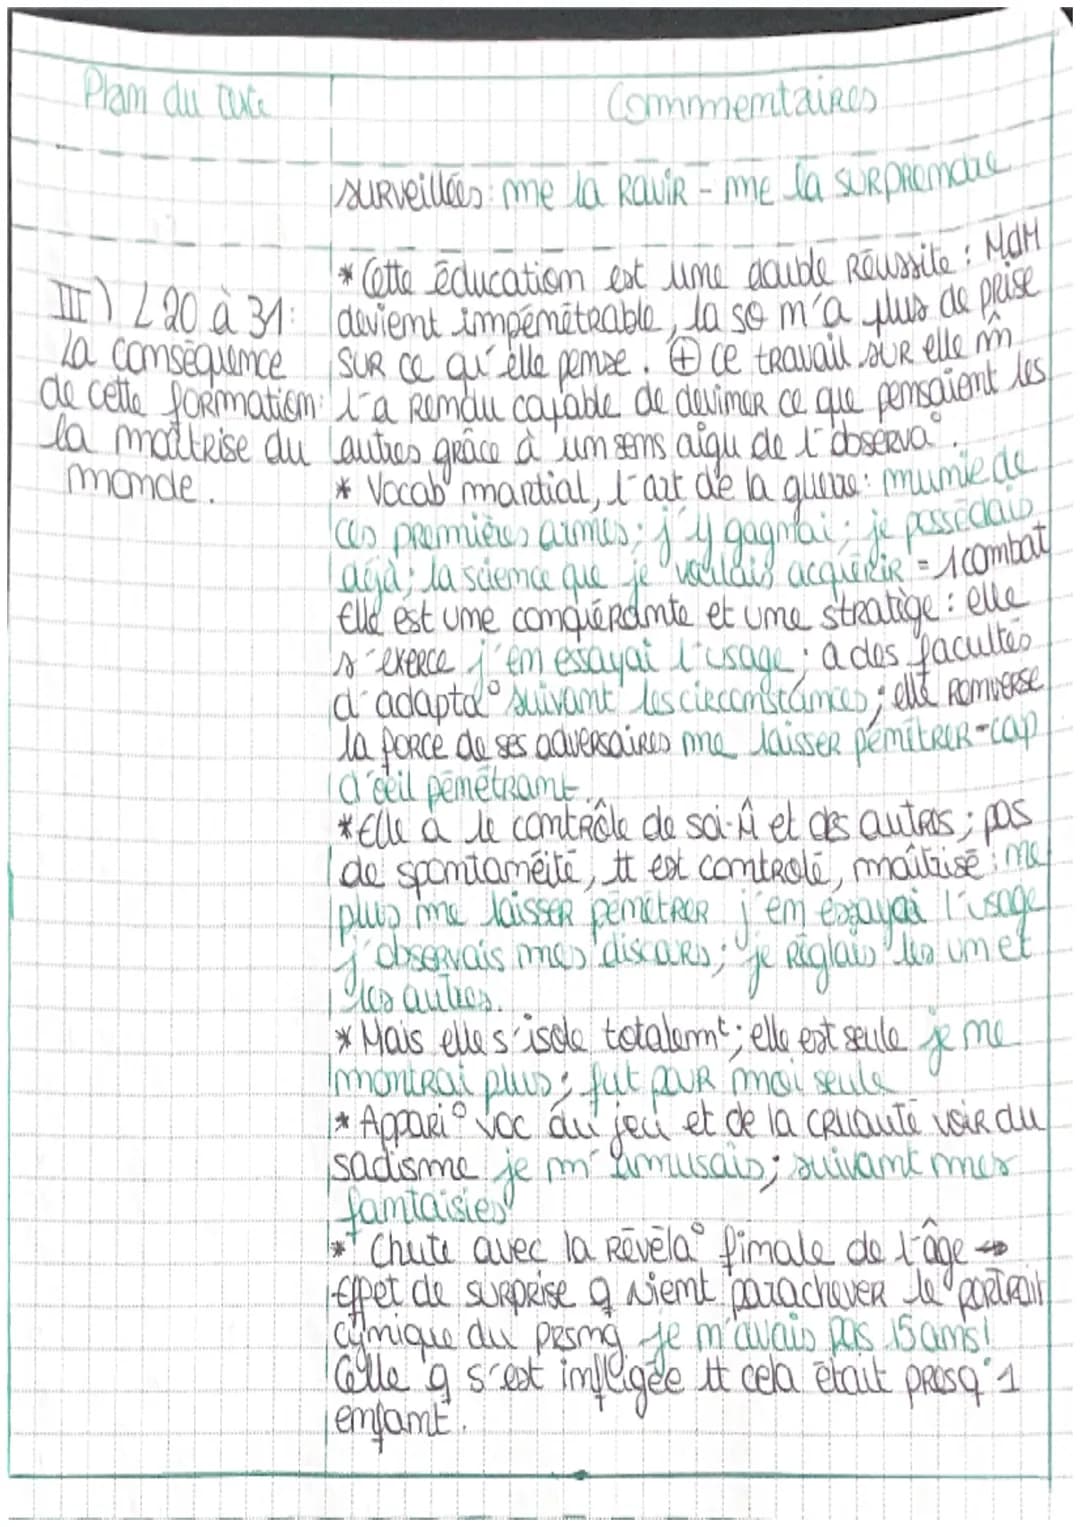 Plan du texte
Commentaires
surveillées : me la ravir - me la surprendre
III) L20 à 31 :
La conséquence
de cette formation :
la maîtrise du
monde.
* Cette éducation est une double réussite : MdM
devient impénétrable, la so n'a plus de prise
sur ce qu'elle pense. ⊕ ce travail sur elle m̂
l'a rendu capable de deviner ce que pensaient les
autres grâce à un sens aigu de l'observa°.
* Vocab martial, l'art de la guerre : munie de
ces premières armes ; j'y gagnai ; je possédais
déjà ; la science que je voulais acquérir = 1 combat
Elle est une conquérante et une stratège : elle
s'exerce j'en essayai l'usage ; a des facultés
d'adapta° suivant les circonstances ; elle renverse
la force de ses adversaires me laisser pénétrer - cap
d'œil pénétrant.
* Elle a le contrôle de soi-m̂ et des autres ; pas
de spontanéité, tt est controlé, maîtrisé : ne
plus me laisser pénétrer j'en essayai l'usage
j'observais mes discours ; je réglais les un et
les autres.
* Mais elle s'isole totalemnt ; elle est seule je me
montrai plus ; fut pour moi seule
* Appari° voc du jeu et de la cruauté voir du
sadisme je m'amusais ; suivant mes
fantaisies
* Chute avec la révéla° finale de l'âge →
Effet de surprise q vient parachever le portrait
cynique du prsng je n'avais pas 15 ans !
Celle q s'est infligée tt cela était presq' 1
enfant.